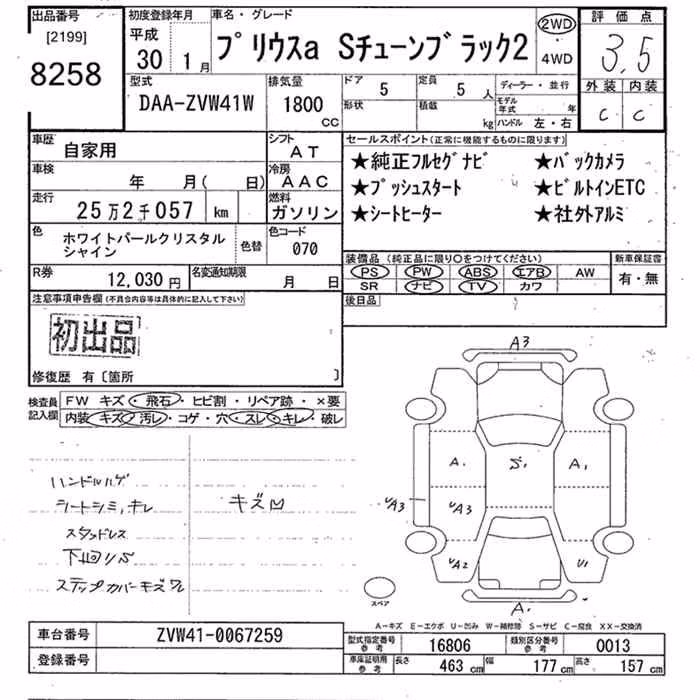 出品番号 初度登録年月 車名・グレード 評価点
[2199] 平成
8258 30 1月 プリウスa Sチューンブラック2 2WD・4WD 3.5
型式 排気量 ドア 定員 ディーラー・並行 外装 内装
DAA-ZVW41W 1800cc 5 5人 モデル年式 年 C C
形状 積載 kg ハンドル 左・右
車歴 自家用 シフト AT セールスポイント(正常に機能するものに限ります)
車検 年 月( 日) 冷房 AAC ★純正フルセグナビ ★バックカメラ
走行 25万2千057 km 燃料 ガソリン ★プッシュスタート ★ビルトインETC
★シートヒーター ★社外アルミ
色 ホワイトパールクリスタルシャイン 色替 色コード 070
装備品(純正品に限り○をつけてください) 新車保証書
PS PW ABS エアB AW 有・無
SR ナビ TV カワ
R券 12,030円 名変通知期限 月 日
後日品
注意事項申告欄(不具合内容等は具体的に記入して下さい)
初出品
修復歴 有〔箇所 〕
検査員記入欄 FW キズ・飛石・ヒビ割・リペア跡・×要
内装 キズ・汚レ・コゲ・穴・スレ・キレ・破レ
ハンドルハゲ
シートシミ,キレ
スタッドレス
下回りS
ステップカバーキズ
キズ
A3
A1 S1 A1
UA3 UA3
UA2 U1
A1
スペア
A-キズ E-エクボ U-凹み W-補修跡 S-サビ C-腐食 XX-交換済
車台番号 ZVW41-0067259
登録番号
型式指定番号 参考 16806 類別区分番号 参考 0013
車庫証明用 参考 長さ 463cm 幅 177cm 高さ 157cm